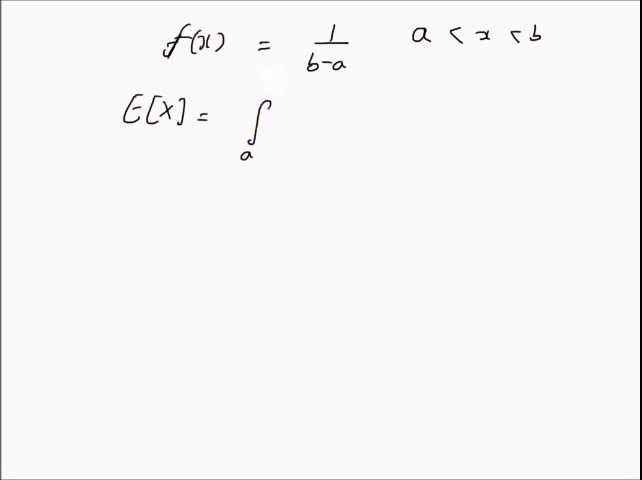 f(x) = 1/(b-a) a < x < b
E[X] = ∫ₐ